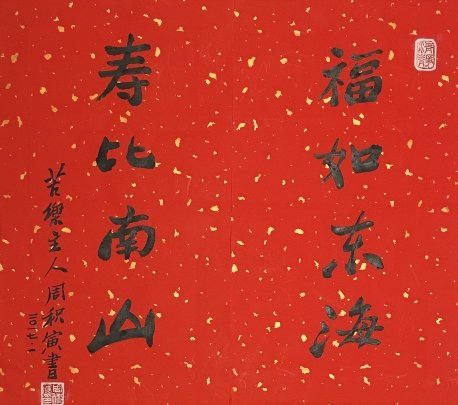 福如东海
寿比南山
苦樂主人周积寅書
二〇一七.一